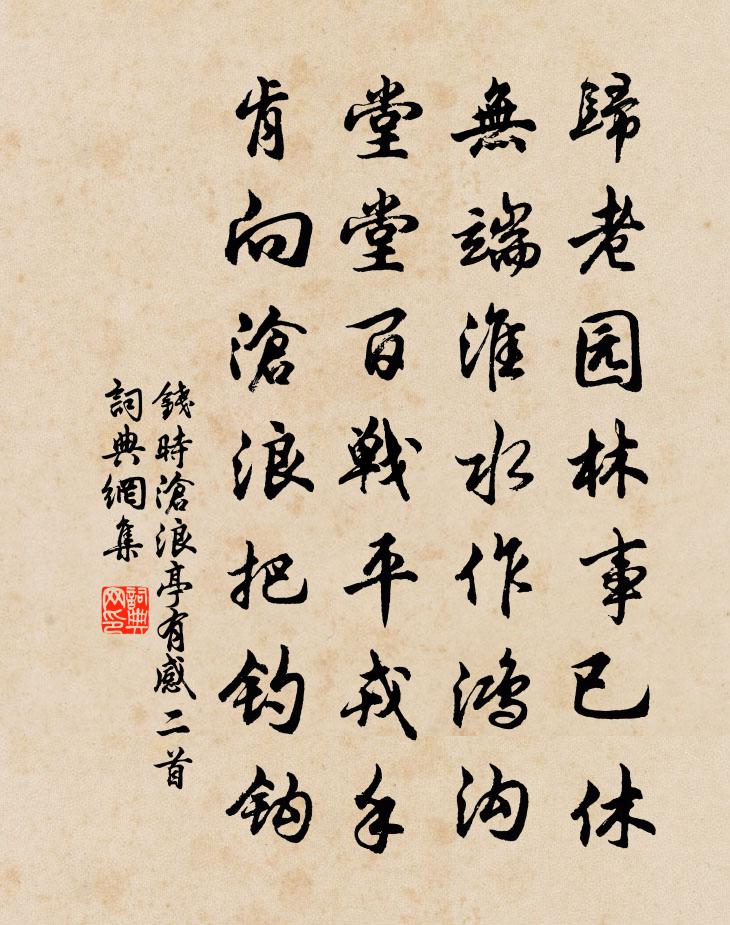 歸老园林事已休
無端淮水作鸿沟
堂堂百戰平戎手
肯向滄浪把釣鈎
錢時滄浪亭有感二首
詞典網集
詞典网印